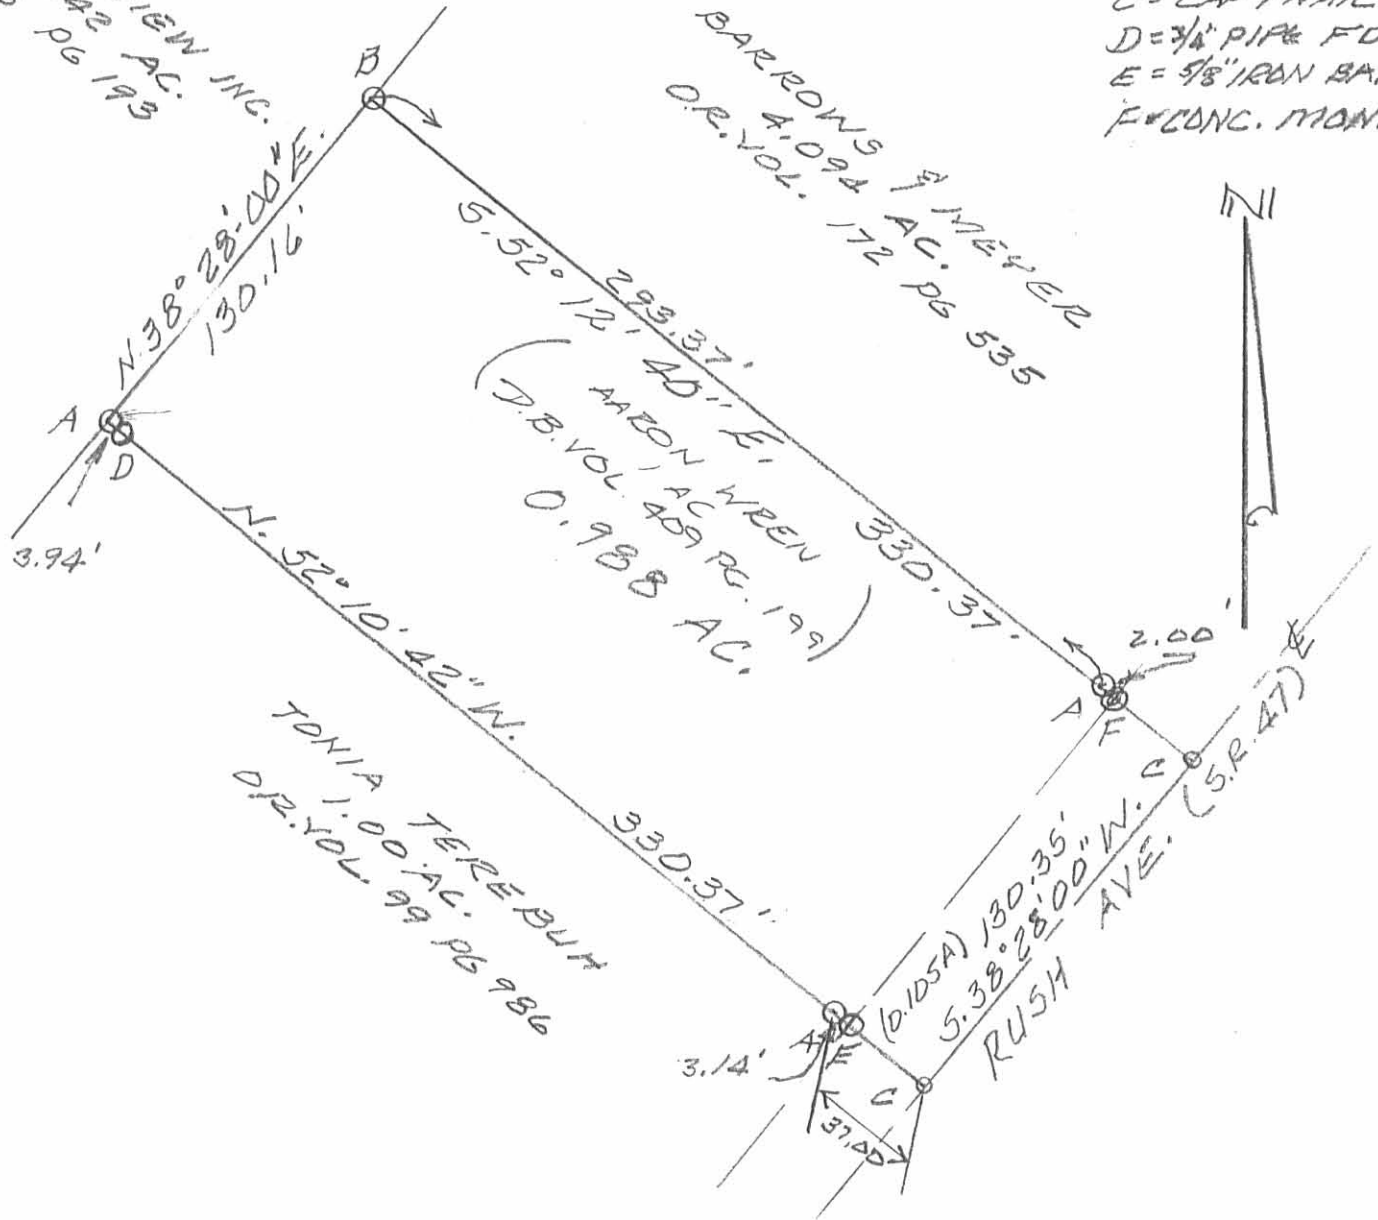 IEW INC.
42 AC.
PG 193
BARROWS & MEYER
4.094 AC.
O.R. VOL. 172 PG 535
D = 3/4" PIPE FD
E = 5/8" IRON BA
F = CONC. MON
N
B
N. 38° 28'-00" E.
130.16'
293.37'
S. 52° 12' 40" E.
330.37'
(AARON WREN
1 AC
D.B. VOL. 409 PG. 199)
0.988 AC.
A
D
3.94'
N. 52° 10' 42" W.
330.37'
TONIA TEREBUH
1.00 AC.
O.R. VOL. 99 PG 986
2.00'
A
F
C
(0.105A) 130.35'
S. 38° 28' 00" W.
RUSH AVE. (S.R. 47)
A
E
3.14'
C
37.00